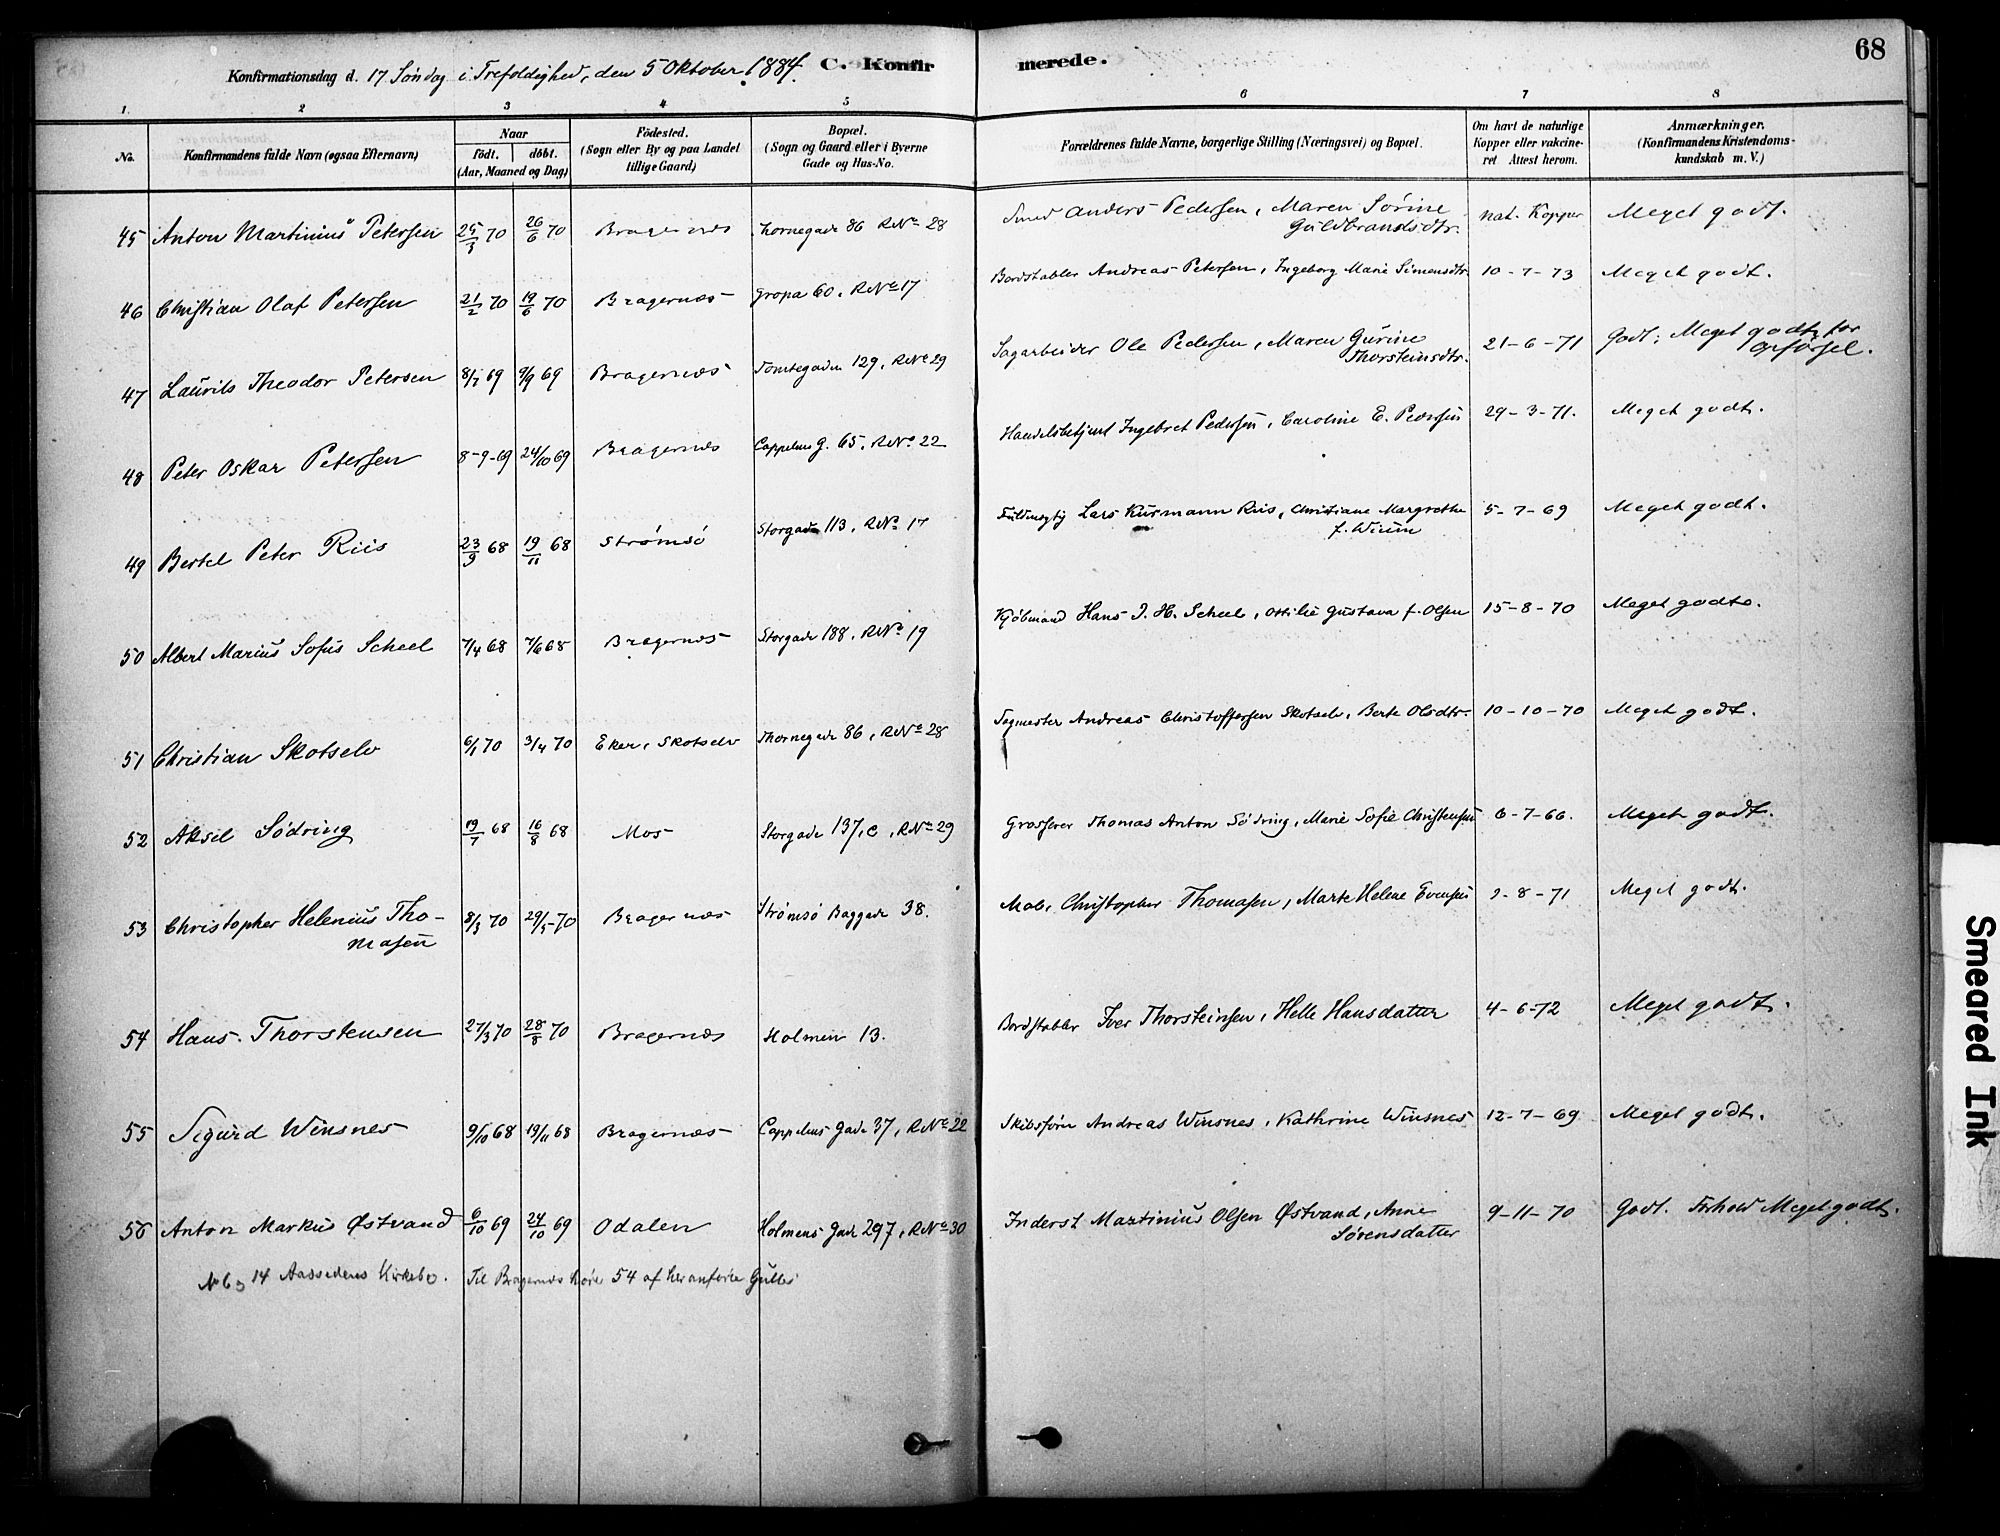 68
Konfirmationsdag d. 17 Søndag i Trefoldighed, den 5 Oktober 1884. C. Konfirmerede.
1. 2 3 4 5 6 7 8
No. Konfirmandens fulde Navn (ogsaa Efternavn) Naar födt. döbt. (Aar, Maaned og Dag) Födested. (Sogn eller By og paa Landet tillige Gaard) Bopæl. (Sogn og Gaard eller i Byerne Gade og Hus-No. Forældrenes fulde Navne, borgerlige Stilling (Næringsvei) og Bopæl. Om havt de naturlige Kopper eller vakcineret Attest herom. Anmærkninger. (Konfirmandens Kristendomskundskab m. V.)
45 Anton Martinius Petersen 25/3 70 26/6 70 Bragernæs Thornegade 86 RNo 28 Smed Anders Pedersen, Maren Sørine Guldbrandsdtr. nat. Kopper Meget godt.
46 Christian Olaf Petersen 21/2 70 19/6 70 Bragernæs Gropa 60, RNo 17 Bordstabler Andreas Petersen, Ingeborg Marie Simensdtr 10-7-73 Meget godt.
47 Laurits Theodor Petersen 8/7 69 9/9 69 Bragernæs Tomtegaden 129, RNo 29 Sagarbeider Ole Pedersen, Maren Gurine Thorsteinsdtr. 21-6-71 Godt; Meget godt for opførsel.
48 Peter Oskar Petersen 8-9-69 24/10 69 Bragernæs Cappelens G. 65, RNo 22 Handelsbetjent Ingebret Pedersen, Caroline E. Pedersen 29-3-71. Meget godt.
49 Bertel Peter Riis 23/9 68 19/11 68 Strømsø Storgade 113, RNo 17 Fuldmegtig Lars Kurmann Riis, Christiane Margrethe f. Wium 5-7-69 Meget godt.
50 Albert Marius Sofus Scheel 7/4 68 7/6 68 Bragernæs Storgade 188, RNo 19 Kjøbmand Hans J. H. Scheel, Ottilie Gustava f. Olsen 15-8-70 Meget godt.
51 Christian Skotselv 6/1 70 3/4 70 Eker, Skotselv Thornegade 86, RNo 28 Sagmester Andreas Christoffersen Skotselv, Berte Olsdtr. 10-10-70 Meget godt.
52 Aksel Sødring 19/7 68 16/8 68 Mos Storgade 137, c, RNo 29 Grosserer Thomas Anton Sødring, Marie Sofie Christensen 6-7-66. Meget godt.
53 Christopher Helenius Thomasen 8/3 70 29/5-70 Bragernæs Strømsø Baggade 38. Mat. Christopher Thomasen, Marte Helene Evensen 2-8-71 Meget godt.
54 Hans Thorstensen 27/3 70 28/8 70 Bragernæs Holmen 13. Bordstabler Iver Thorsteinsen, Helle Hansdatter 4-6-72 Meget godt.
55 Sigurd Winsnes 9/10 68 19/11 68 Bragernæs Cappelens Gade 37, RNo 22 Skibsfører Andreas Winsnes, Kathrine Winsnes 12-7-69 Meget godt.
56 Anton Markus Østvand 6/10 69 24/10 69 Odalen Holmens Gade 297, RNo 30 Inderst Martinius Olsen Østvand, Anne Sørensdatter 9-11-70 Godt. Forhold Meget godt.
14 Aassedens Kirkebo. Til Bragernæs 54 af heranførte Gutter
Smeared Ink